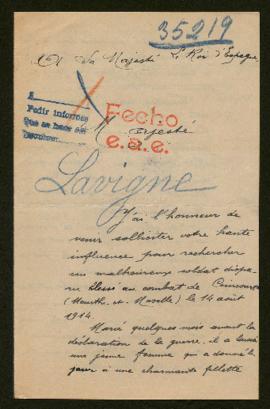 35219
A Sa Majesté le Roi d'Espagne
A
Pedir informes
Que se hace
Fecho
e.a.e.
Majesté
Lavigne
J'ai l'honneur de
venir solliciter votre haute
influence pour rechercher
un malheureux soldat dispa-
ru blessé au combat de
(Meurthe-et-Moselle) le 14 août
1914.
Marié quelques mois avant la
déclaration de la guerre, il a laissé
une jeune femme qui a donné le
jour à une charmante fillette